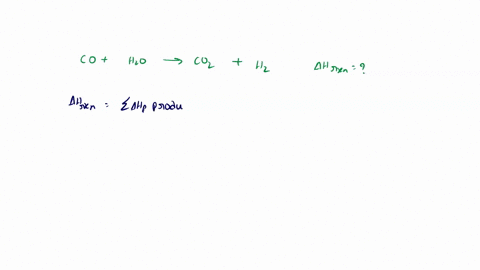 CO + H2O → CO2 + H2 ΔHrxn = ?
ΔHrxn = ΣΔHf produ